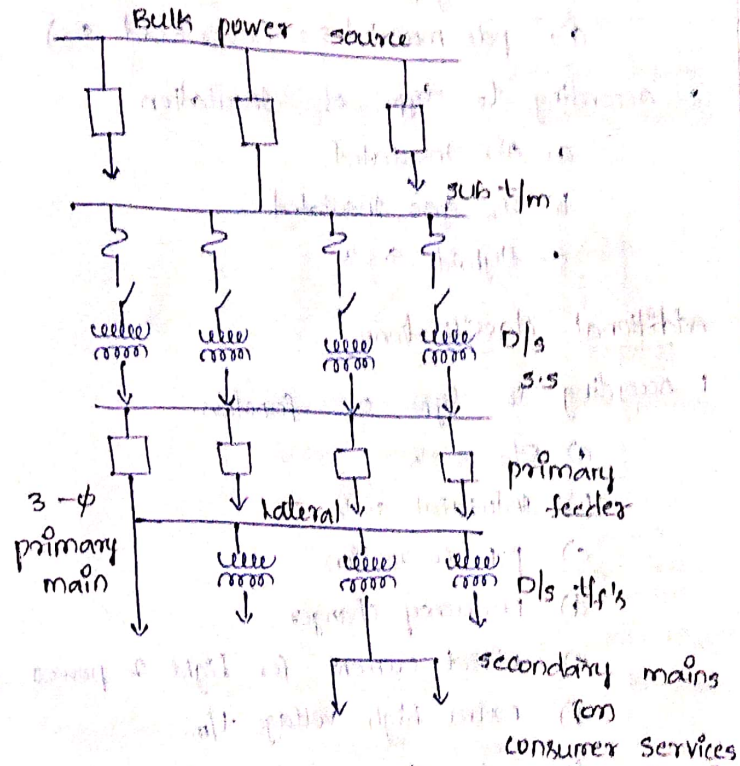 Bulk power source
sub-t/m
D/s
s.s
primary
feeder
3-ϕ
primary
main
Lateral
D/s t/f's
secondary mains
(or)
consumer services